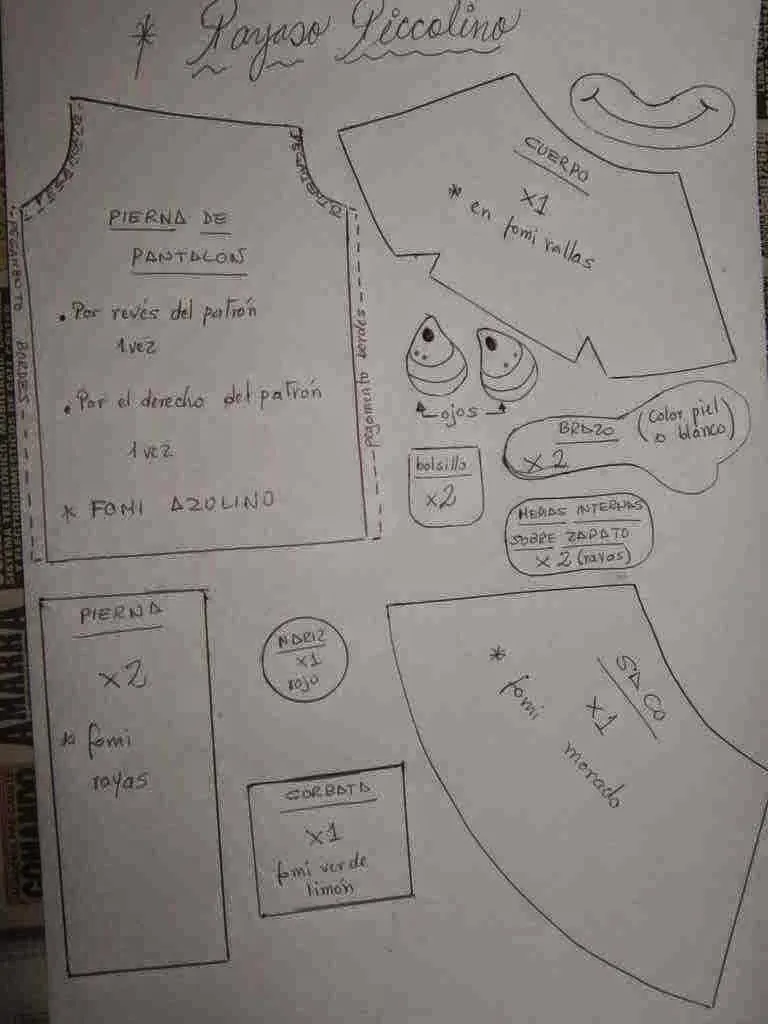 * Payaso Piccolino
PIERNA DE
PANTALON
• Por revés del patrón
1 vez
• Por el derecho del patrón
1 vez
* FOMI AZULINO
PEGAMENTO BORDES
pegamento bordes
CUERPO
x1
* en fomi rallas
ojos
bolsillo
x2
BRAZO
x2
(Color piel
o blanco)
MEDIAS INTERNAS
SOBRE ZAPATO
x 2 (rayas)
PIERNA
x2
* fomi
rayas
NARIZ
x1
rojo
CORBATA
x1
fomi verde
limón
SACO
x1
* fomi
morado
AMARRA
COMANDO